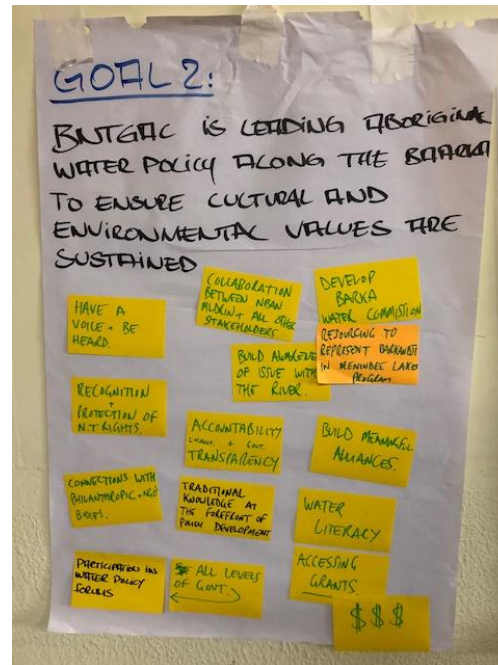 GOAL 2:
BNTGAC IS LEADING ABORIGINAL
WATER POLICY ALONG THE BAARKA
TO ENSURE CULTURAL AND
ENVIRONMENTAL VALUES ARE
SUSTAINED
HAVE A
VOICE + BE
HEARD.
COLLABORATION
BETWEEN NBAN
MLDRIN + ALL OTHER
STAKEHOLDERS
DEVELOP
BARKA
WATER COMMISTION
RESOURCING TO
REPRESENT BARKANDJI
IN MENINDEE LAKES
PROGRAM
BUILD AWARENE
OF ISSUE WITH
THE RIVER.
RECOGNITION
+
PROTECTION OF
N.T RIGHTS.
ACCOUNTABILITY
+ GOVT.
TRANSPARENCY
BUILD MEANINGFUL
ALLIANCES.
CONNECTIONS WITH
PHILANTHROPIC + NGO
BODIES.
TRADITIONAL
KNOWLEDGE AT
THE FOREFRONT OF
POLICY DEVELOPMENT
WATER
LITERACY
PARTICIPATION IN
WATER POLICY
FORUMS
ALL LEVELS
OF GOVT.
ACCESSING
GRANTS.
$ $ $